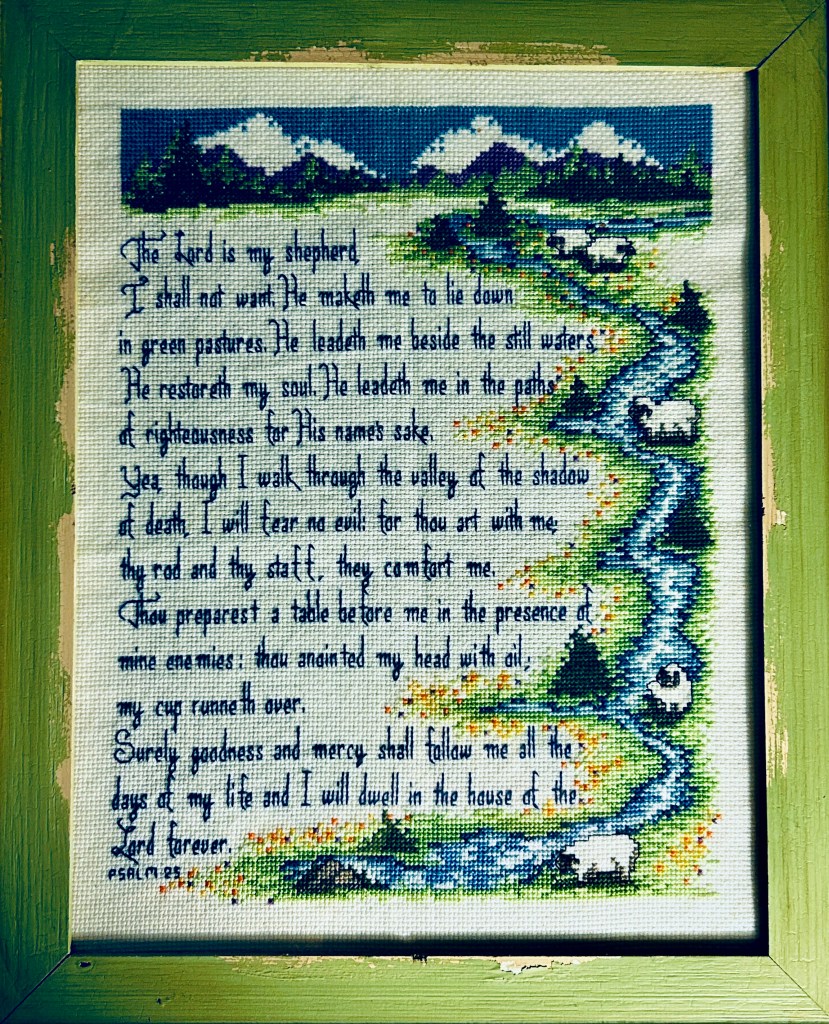 The Lord is my shepherd,
I shall not want. He maketh me to lie down
in green pastures. He leadeth me beside the still waters,
He restoreth my soul. He leadeth me in the paths
of righteousness for His name's sake.
Yea, though I walk through the valley of the shadow
of death, I will fear no evil: for thou art with me;
thy rod and thy staff, they comfort me.
Thou preparest a table before me in the presence of
mine enemies: thou anointed my head with oil;
my cup runneth over.
Surely goodness and mercy shall follow me all the
days of my life and I will dwell in the house of the
Lord forever.
PSALM 23